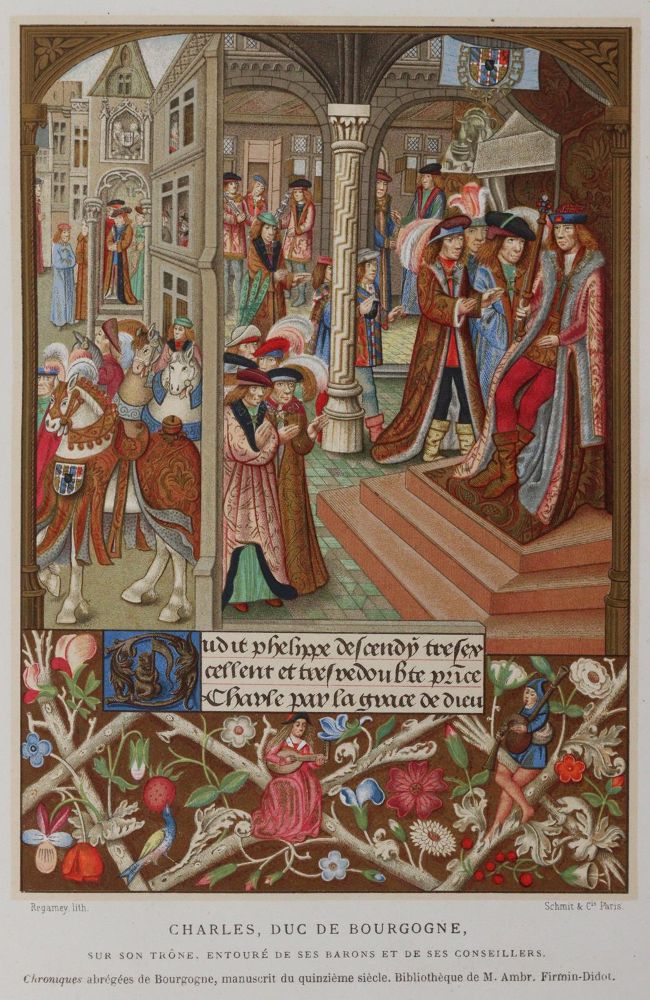 Dudit phelippe descendy tresex
cellent et tresredoubte prince
Charle par la grace de dieu
Regamey, lith.
Schmit & Cie Paris.
CHARLES, DUC DE BOURGOGNE,
SUR SON TRÔNE, ENTOURÉ DE SES BARONS ET DE SES CONSEILLERS.
Chroniques abrégées de Bourgogne, manuscrit du quinzième siècle. Bibliothèque de M. Ambr. Firmin-Didot.